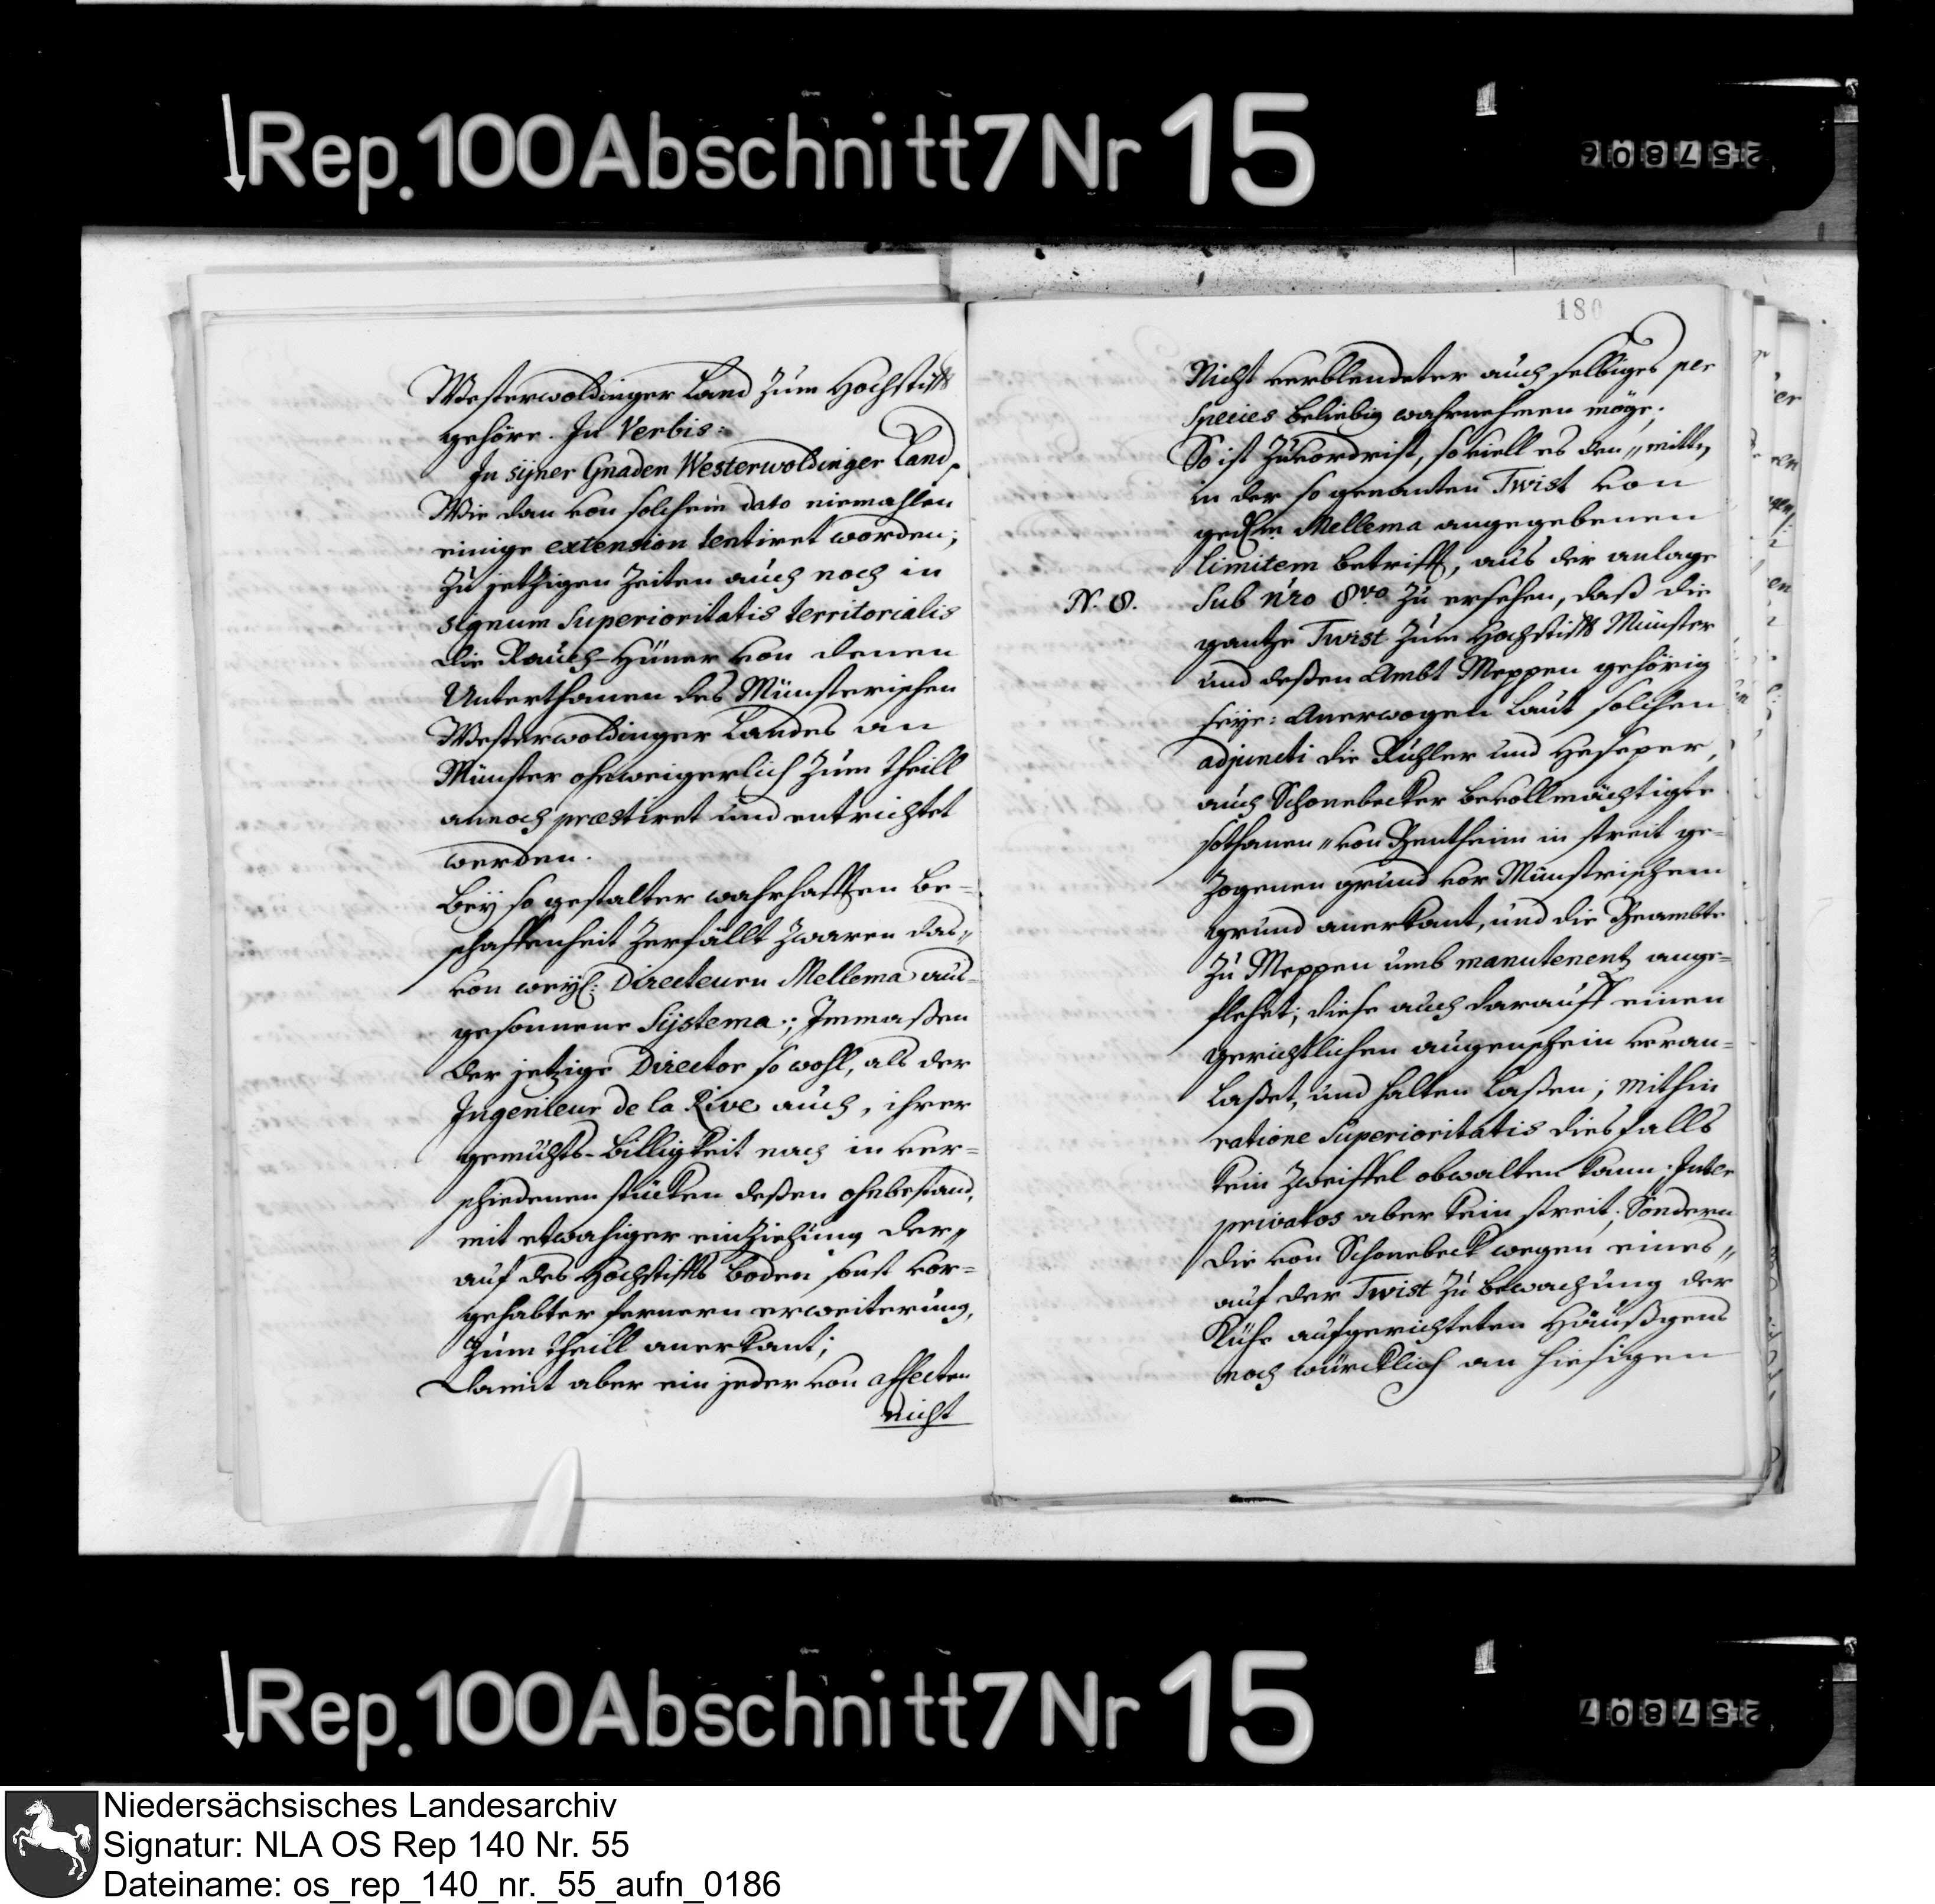 Rep. 100 Abschnitt 7 Nr 15
257806
Westerwoldinger Land zum Hochstifft
gehöre. In Verbis:
In syner Gnaden Westerwoldinger Land.
Wie dan von solchem dato niemahlen
einige extension tentiret worden;
Zu jetzigen Zeiten auch noch in
signum Superioritatis territorialis
die Rauch-Hüner von denen
Unterthanen des Münsterischen
Westerwoldinger Landes an
Münster ohnweigerlich zum theill
annoch præstiret und entrichtet
werden.
Bey so gestalter wahrhafften be-
schaffenheit zerfällt zwaren das„
von weyl: Directeuren Mellema aus-
gesonnene Systema; Inmaßen
der jetzige Director so wohl, als der
Ingenieur de la Rive auch, ihrer
gemüths-billigkeit nach in ver-
schiedenen stücken deßen ohnbestand,
mit etwahiger einziehung der„
auf des Hochstiffts boden sonst vor-
gehabter fernern erweiterung,
zum theill anerkant;
Damit aber ein jeder von affecten
nicht
180
Nicht verblendeter auch selbiges per
species beliebig wahrnehmen möge;
So ist zuvordrist, so viell es den„ mitten
in der so genanten Twist von
gedchm Mellema angegebenen
limitem betrifft, aus der anlage
N. 8.
sub nro 8vo zu ersehen, daß die
gantze Twist zum Hochstifft Münster
und deßen Ambt Meppen gehörig
seye: Anerwogen laut solchen
adjuncti die Rühler und Heseper,
auch Schonebecker bevollmächtigte
sothanen„ von Bentheim in streit ge-
zogenen grund vor Münstrischem
grund anerkant, und die Beambte
zu Meppen umb manutenentz ange-
flehet; diese auch darauff einen
gerichtlichen augenschein veran-
laßet, und halten laßen; mithin
ratione Superioritatis diesfalls
kein zweiffel obwalten kann; Inter
privatos aber kein streit; Sondern
die von Schonebeck wegen eines„
auf der Twist zu bewachung der
Kühe aufgerichteten Häußgens
noch würcklich an hiesigen
Rep. 100 Abschnitt 7 Nr 15
257807
Niedersächsisches Landesarchiv
Signatur: NLA OS Rep 140 Nr. 55
Dateiname: os_rep_140_nr._55_aufn_0186